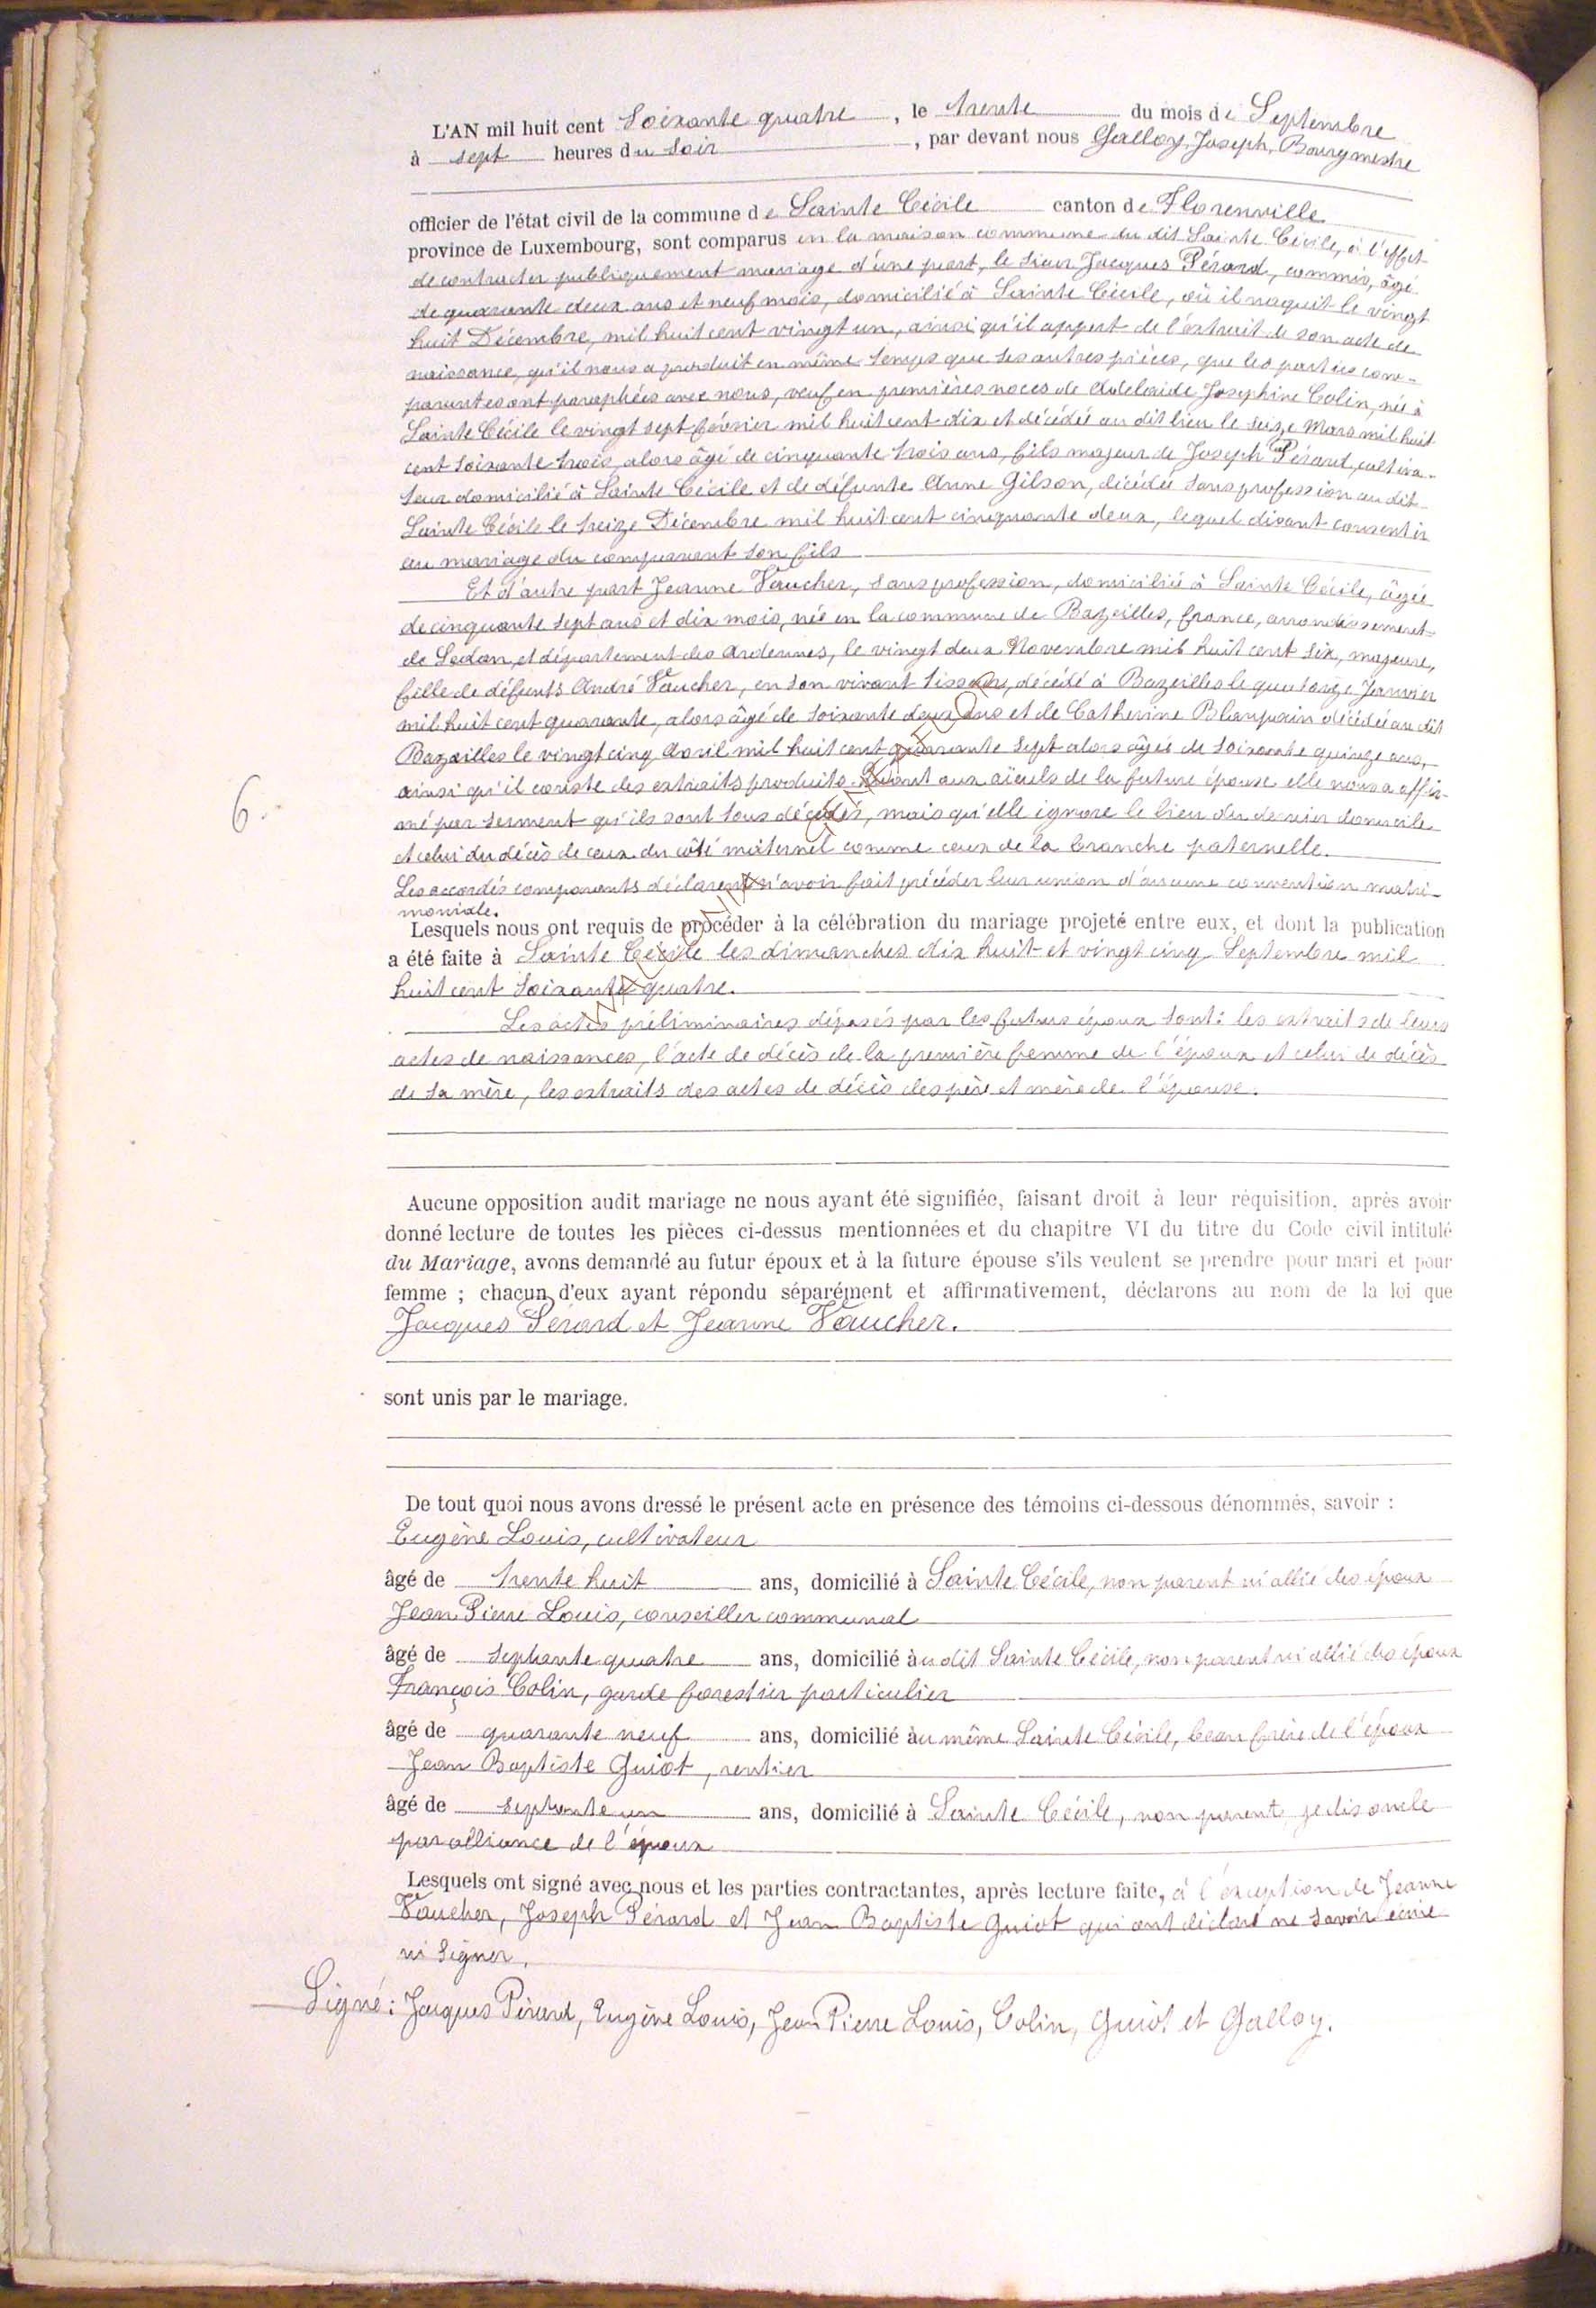 L'AN mil huit cent soixante quatre, le trente du mois de Septembre
à sept heures du soir, par devant nous Galloy, Joseph, Bourgmestre
officier de l'état civil de la commune de Sainte Cécile canton de Florenville
province de Luxembourg, sont comparus en la maison commune du dit Sainte Cécile, à l'effet
de contracter publiquement mariage d'une part, le sieur Jacques Pérard, commis, âgé
de quarante deux ans et neuf mois, domicilié à Sainte Cécile, où il naquit le vingt
huit Décembre, mil huit cent vingt un, ainsi qu'il appert de l'extrait de son acte de
naissance, qu'il nous a produit en même temps que ses autres pièces, que les parties com-
parantes ont paraphées avec nous, veuf en premières noces de Adelaïde Josephine Colin, née à
Sainte Cécile le vingt sept février mil huit cent dix et décédée au dit lieu le seize Mars mil huit
cent soixante trois, alors âgé de cinquante trois ans, fils majeur de Joseph Pérard, cultiva-
teur domicilié à Sainte Cécile et de défunte Anne Gilson, décédée sans profession au dit
Sainte Cécile le treize Décembre mil huit cent cinquante deux, lequel disant consentir
au mariage du comparant son fils
Et d'autre part Jeanne Vaucher, sans profession, domiciliée à Sainte Cécile, âgée
de cinquante sept ans et dix mois, née en la commune de Bazeilles, france, arrondissement
de Sedan, et département des Ardennes, le vingt deux Novembre mil huit cent six, majeure,
fille de défunts André Vaucher, en son vivant tisseur, décédé à Bazeilles le quatorze Janvier
mil huit cent quarante, alors âgé de soixante deux ans et de Catherine Blanpain décédée au dit
Bazeilles le vingt cinq Avril mil huit cent quarante sept alors âgée de soixante quinze ans,
ainsi qu'il conste des extraits produits. Quant aux aïeuls de la future épouse elle nous a affir-
6. mé par serment qu'ils sont tous décédés, mais qu'elle ignore le lieu du dernier domicile
et celui du décès de ceux du côté maternel comme ceux de la branche paternelle.
Les accordés comparants déclarent n'avoir fait précéder leur union d'aucune convention matri-
moniale.
Lesquels nous ont requis de procéder à la célébration du mariage projeté entre eux, et dont la publication
a été faite à Sainte Cécile les dimanches dix huit et vingt cinq Septembre mil
huit cent soixante quatre.
Les actes préliminaires déposés par les futurs époux sont: les extraits de leurs
actes de naissances, l'acte de décès de la première femme de l'époux et celui de décès
de sa mère, les extraits des actes de décès des père et mère de l'épouse.
Aucune opposition audit mariage ne nous ayant été signifiée, faisant droit à leur réquisition, après avoir
donné lecture de toutes les pièces ci-dessus mentionnées et du chapitre VI du titre du Code civil intitulé
du Mariage, avons demandé au futur époux et à la future épouse s'ils veulent se prendre pour mari et pour
femme ; chacun d'eux ayant répondu séparément et affirmativement, déclarons au nom de la loi que
Jacques Pérard et Jeanne Vaucher.
sont unis par le mariage.
De tout quoi nous avons dressé le présent acte en présence des témoins ci-dessous dénommés, savoir :
Eugène Louis, cultivateur
âgé de trente huit ans, domicilié à Sainte Cécile, non parent ni allié des époux
Jean Pierre Louis, conseiller communal
âgé de septante quatre ans, domicilié audit Sainte Cécile, non parent ni allié des époux
François Colin, garde forestier particulier
âgé de quarante neuf ans, domicilié au même Sainte Cécile, beau frère de l'époux
Jean Baptiste Guiot, rentier
âgé de septante un ans, domicilié à Sainte Cécile, non parent, je dis oncle
par alliance de l'époux
Lesquels ont signé avec nous et les parties contractantes, après lecture faite, à l'exception de Jeanne
Vaucher, Joseph Pérard et Jean Baptiste Guiot qui ont déclaré ne savoir écrire
ni signer.
Signé: Jacques Pérard, Eugène Louis, Jean Pierre Louis, Colin, Guiot et Galloy.